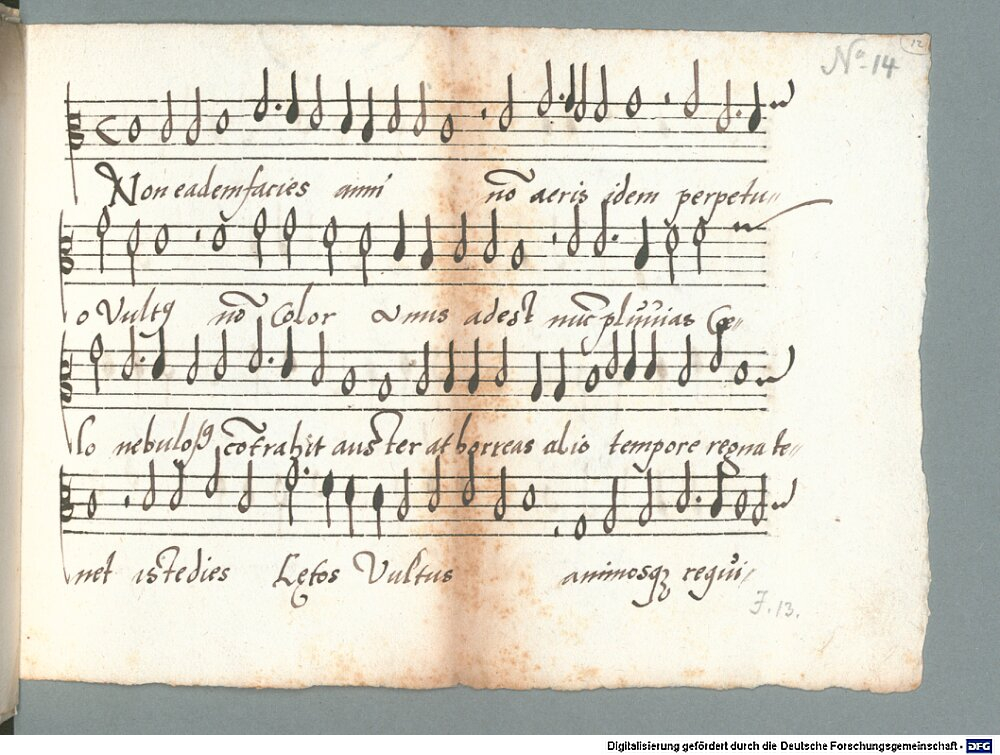 12
No 14
Non eadem facies anni nō aeris idem perpetu
o Vultq nō Color adest nūc pluuias Cę
lo nebulosq cōtrahit auster at borreas alio tempore regna te
net iste dies Lętos Vultus animosqz requi
J. 13.
Digitalisierung gefördert durch die Deutsche Forschungsgemeinschaft - DFG